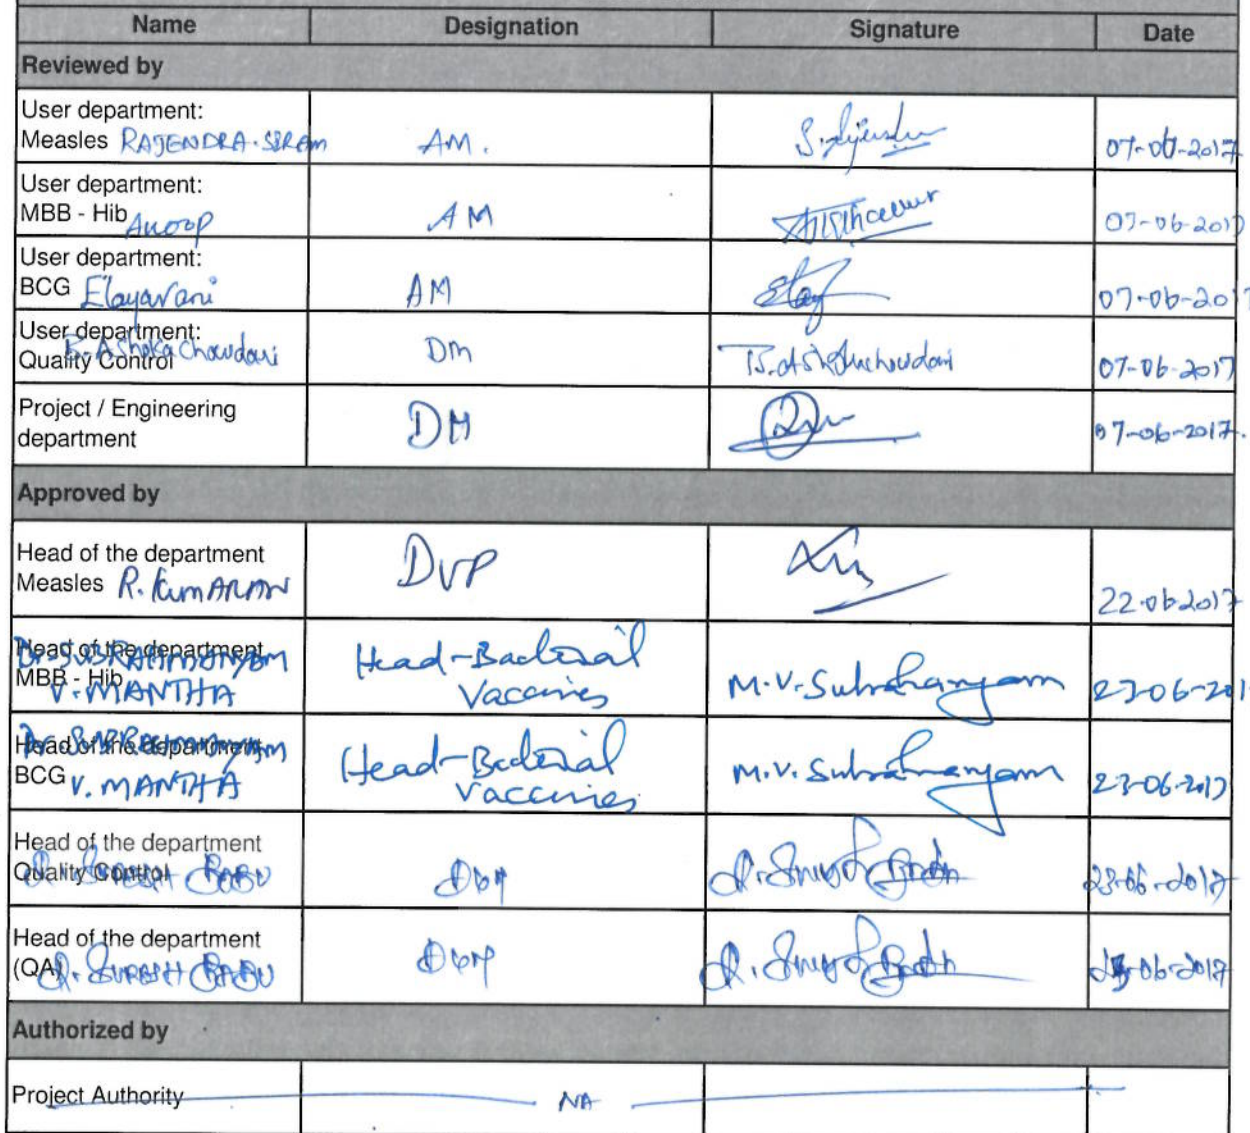 Name Designation Signature Date
Reviewed by
User department:
Measles RAJENDRA. AM. 07-06-2017
User department:
MBB - Hib Anoop AM 07-06-2017
User department:
BCG Elayarani AM 07-06-201
User department:
B. Ashoka Chowdari
Quality Control DM B. Ashokachowdari 07-06-2017
Project / Engineering
department DM 07-06-2017.
Approved by
Head of the department
Measles R. KUMARAN DVP 22-06-2017
Head of the department Head-Bacterial
Dr. SUBRAHMANYAM
MBB - Hib
V. MANTHA Vaccines M.V. Subrahmanyam 23-06-201
Head of the department Head-Bacterial
Dr. SUBRAHMANYAM
BCG V. MANTHA Vaccines M.V. Subrahmanyam 23-06-2017
Head of the department
Quality Control SURESH BABU 23-06-2017
Head of the department
(QA) SURESH BABU 23-06-2017
Authorized by
Project Authority NA